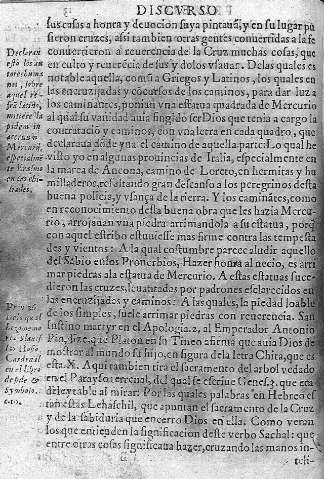 DISCVRSO
sus casas a honra y deuocion suya pintauã, y en su lugar pu
sieron cruzes, assi tambien otras gentes conuertidas a la fe
conuertieron a reuerencia de la Cruz muchas cosas, que
en culto y reuerẽcia de sus ydolos vsauan. De las quales es
notable aquella, comũ a Griegos y Latinos, los quales en
las encruzijadas y cõcursos de los caminos, para dar luz a
los caminantes, ponian vna estatua quadrada de Mercurio
al qual su vanidad auia fingido ser Dios que tenia a cargo la
contratacion y caminos, cõ vna letra en cada quadro, que
declaraua dõde yua el camino de aquella parte. Lo qual he
visto yo en algunas prouincias de Italia, especialmente en
la marca de Ancona, camino de Loreto, en hermitas y hu
milladeros, resaltando gran descanso a los peregrinos desta
buena policia, y vsança de la tierra. Y los caminãtes, como
en reconocimiento desta buena obra que les hazia Mercu-
rio, arrojauan vna piedra arrimandola a su estatua, porq̃
con aquel estribo estuuiesse mas firme contra las tempesta
des y vientos. A la qual costumbre parece aludir aquello
del Sabio en los Prouerbios, Hazer honra al necio, es arri
mar piedras a la estatua de Mercurio. A estas estatuas suce
dieron las cruzes, leuantadas por padrones esclarecidos en
las encruzijadas y caminos: A las quales, la piedad loable
de los simples, suele arrimar piedras con reuerencia. San
Iustino martyr en el Apologia 2, al Emperador Antonio
Pio, dize, que Platon en su Timeo afirma que auia Dios de
mostrar al mundo su hijo, en figura de la letra Chita, que es
esta X. Aqui tambien tira el sacramento del arbol vedado
en el Parayso terrenal, del qual se escriue Genes. 2, que era
deleytable al mirar: Por las quales palabras en Hebreo es
tan estas Lehaschil, que apuntan el sacramento de la Cruz
y de la sabiduria que encerro Dios en ella. Como veran
los que entienden la significacion deste verbo Sachal: que
entre otras cosas significa hazer, cruzando las manos in-
testi-
Declara
esto los an
Mercurio,
especialmẽ
te Erasmo
Cardinal
en el libro
Symbolo.